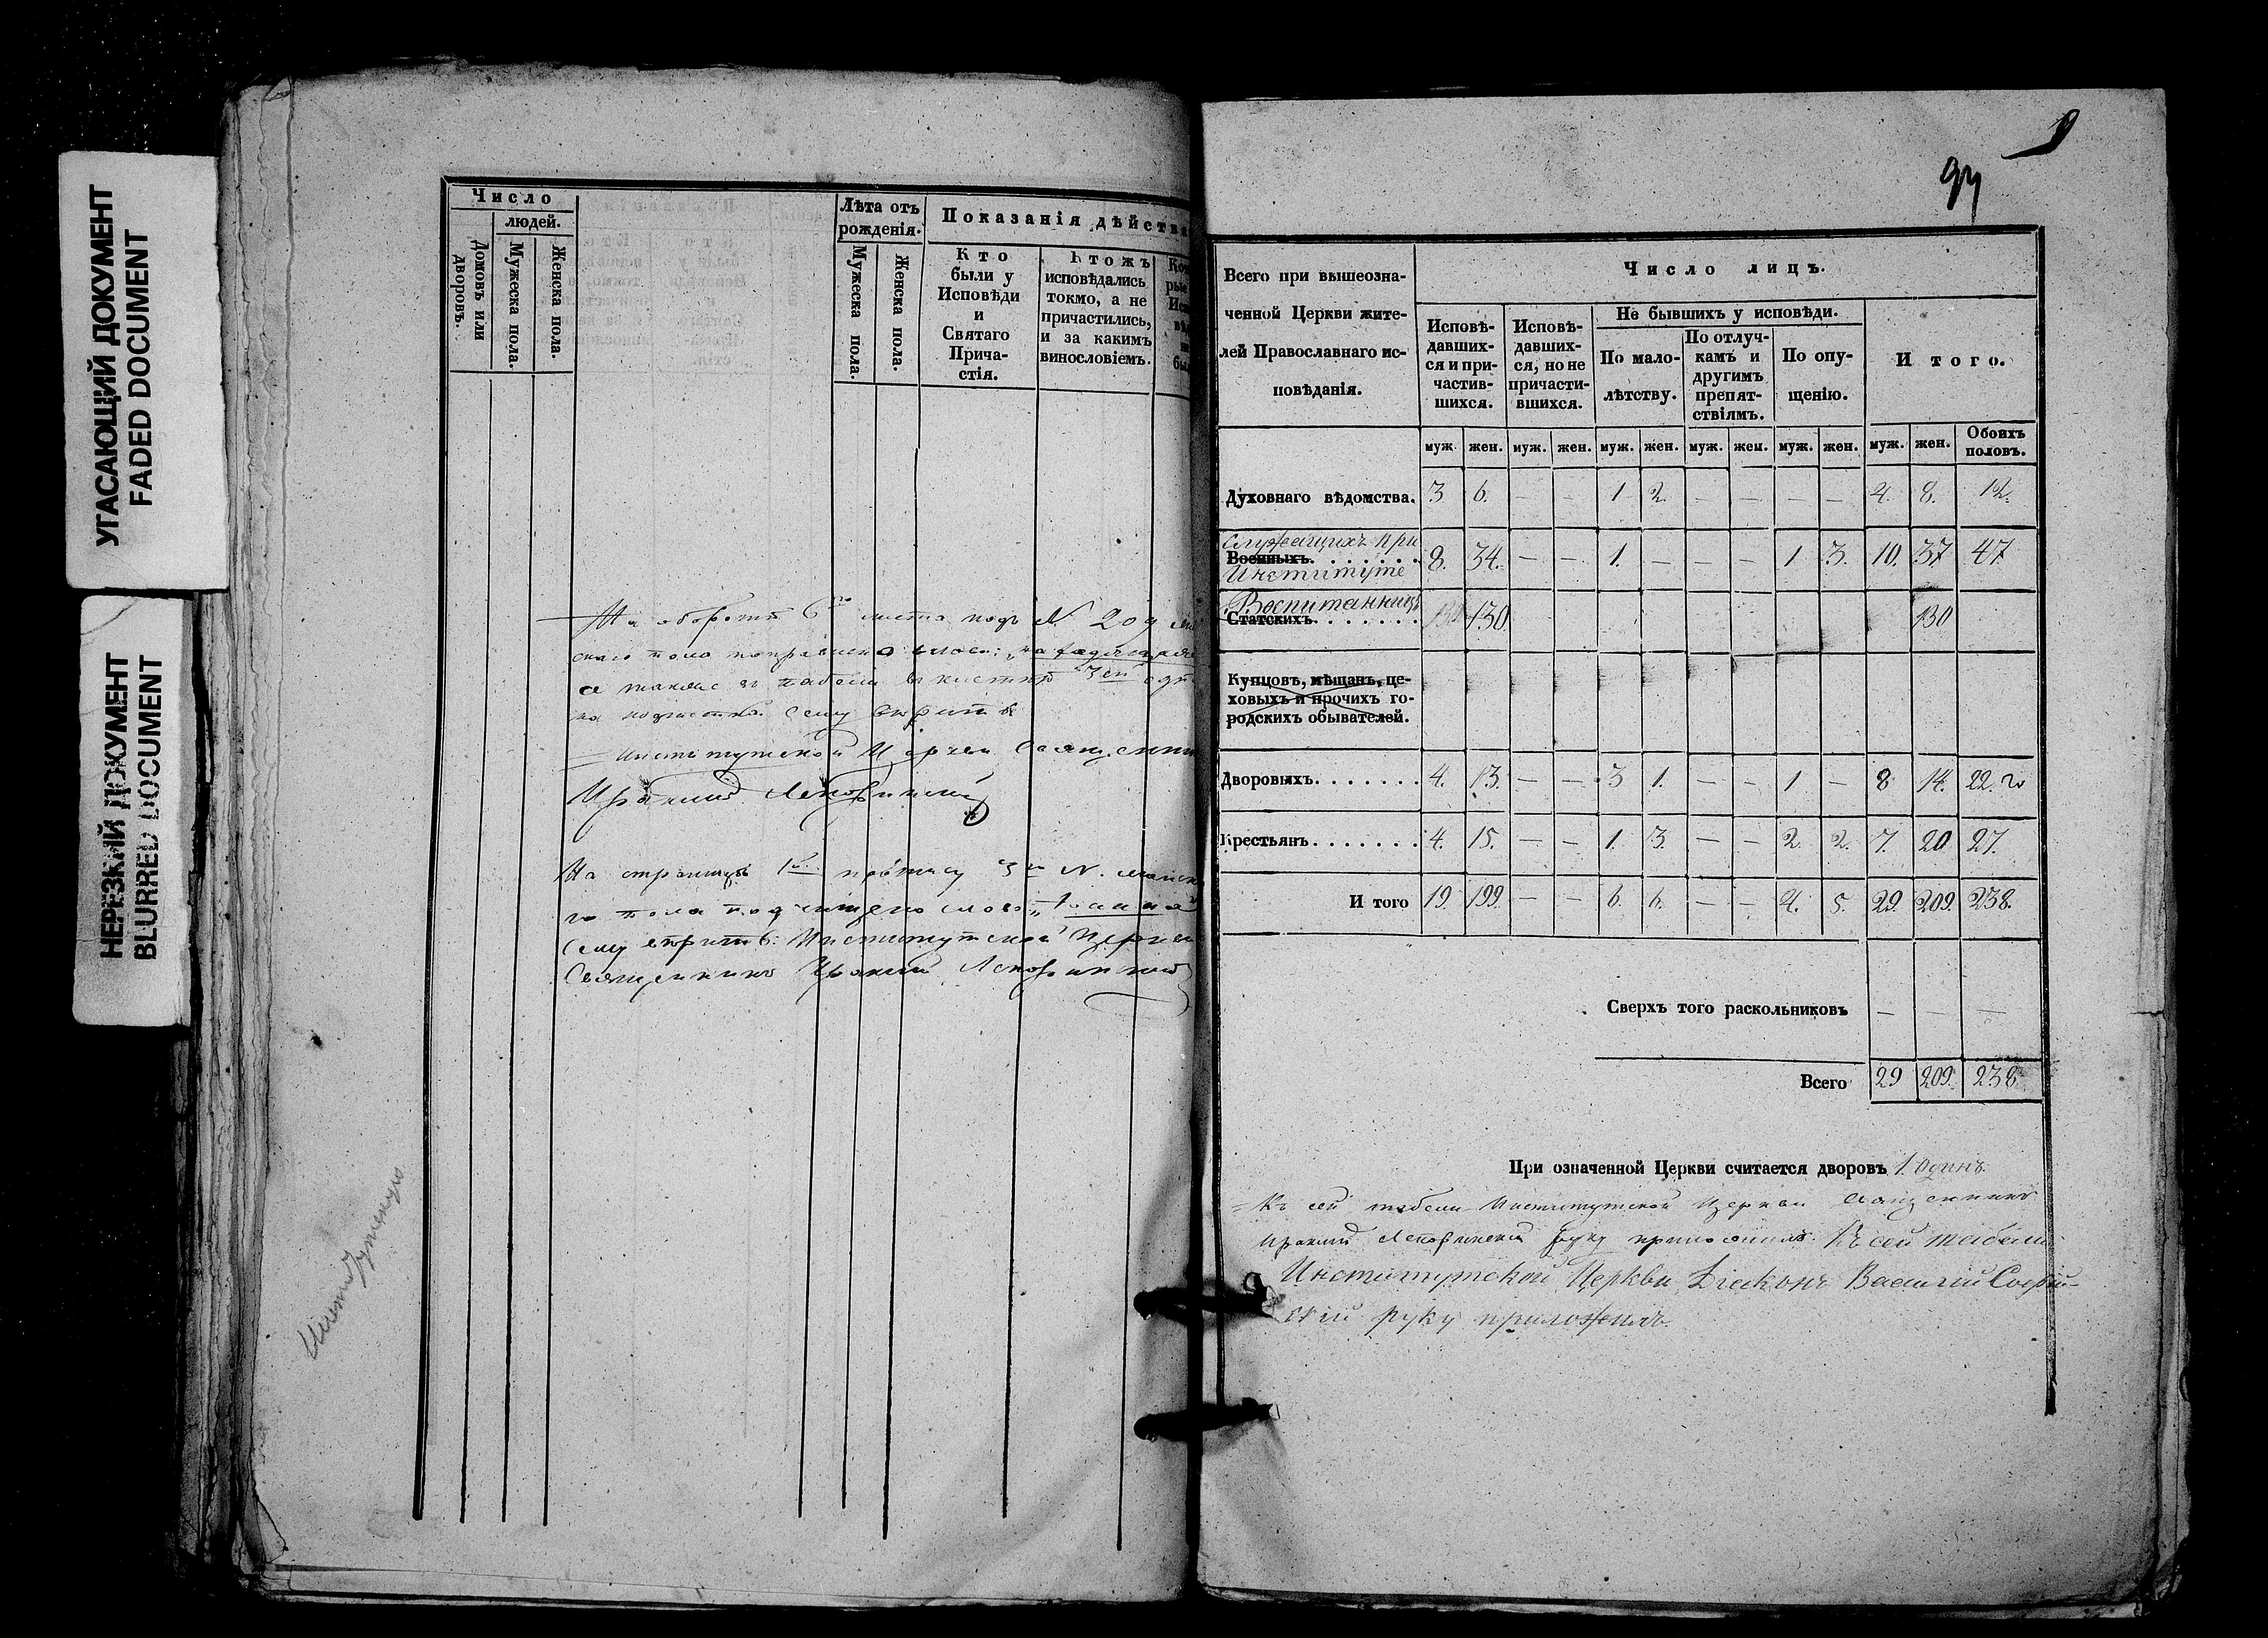 УГАСАЮЩИЙ ДОКУМЕНТ
FADED DOCUMENT
НЕРЕЗКИЙ ДОКУМЕНТ
BLURRED DOCUMENT
Число
людей.
Домовъ или дворовъ.
Мужеска пола.
Женска пола.
Лѣта отъ рожденія.
Мужеска пола.
Женска пола.
Показанія дѣйства
Кто
были у
Исповѣди
и
Святаго
Прича-
стія.
Ктожъ
исповѣдались
токмо, а не
причастились,
и за какимъ
винословіемъ.
На оборотѣ 6го листа подъ N. 20
скаго пола
а также въ табели
Сему вѣрить
Институтской Церкви Священникъ
Ираклий
На страницѣ 1й противу 3го N. женска
го пола подчищено слово „Іоанна"
Сему вѣрить: Институтской Церкви
Священникъ Ираклий
Институтскую
9
Всего при вышеозна-
ченной Церкви жите-
лей Православнаго ис-
повѣданія.
Число лицъ.
Исповѣ-
давших-
ся и при-
частив-
шихся.
Исповѣ-
давших-
ся, но не
причасти-
вшихся.
Не бывшихъ у исповѣди.
По мало-
лѣтству.
По отлуч-
камъ и
другимъ
препят-
ствіямъ.
По опу-
щенію.
Итого.
муж. жен. муж. жен. муж. жен. муж. жен. муж. жен. муж. жен. Обоихъ половъ.
Духовнаго вѣдомства. 3 6. — — 1 2. — — — — 4. 8. 12.
Служащихъ при
Военныхъ. . . . . . . 8. 34. — — 1. — — — 1 3. 10. 37 47.
Институтѣ
Воспитанницъ
Статскихъ. . . . . . . 130. 130
Купцовъ, мѣщанъ, це-
ховыхъ и прочихъ го-
родскихъ обывателей.
Дворовыхъ. . . . . . . 4. 13. — — 3 1. — — 1 — 8 14. 22.
Крестьянъ. . . . . . . 4. 15. — — 1. 3. — — 2. 2. 7. 20 27.
И того 19. 199. — — 6. 6. — — 4. 5. 29. 209. 238.
Сверхъ того раскольниковъ — — —
Всего 29 209. 238
При означенной Церкви считается дворовъ 1. одинъ.
Къ сей табели Институтской Церкви Священникъ
Ираклий руку приложилъ. Къ сей табели
Институтской Церкви Діаконъ Василий Софий-
скій руку приложилъ.